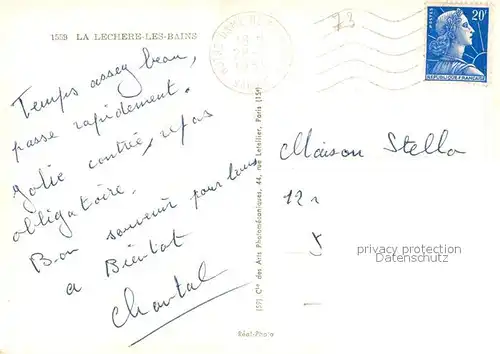 1553 LA LECHERE-LES-BAINS
Temps assez beau,
passe rapidement.
Jolie contrée, repas
obligatoire.
Bon souvenir pour tous
à Bientôt
Chantal
73
POSTES
20F
REPUBLIQUE FRANÇAISE
Maison Stella
12
privacy protection
Datenschutz
(57) Cie des Arts Photomécaniques, 44, rue Letellier, Paris (15e)
Réal-Photo